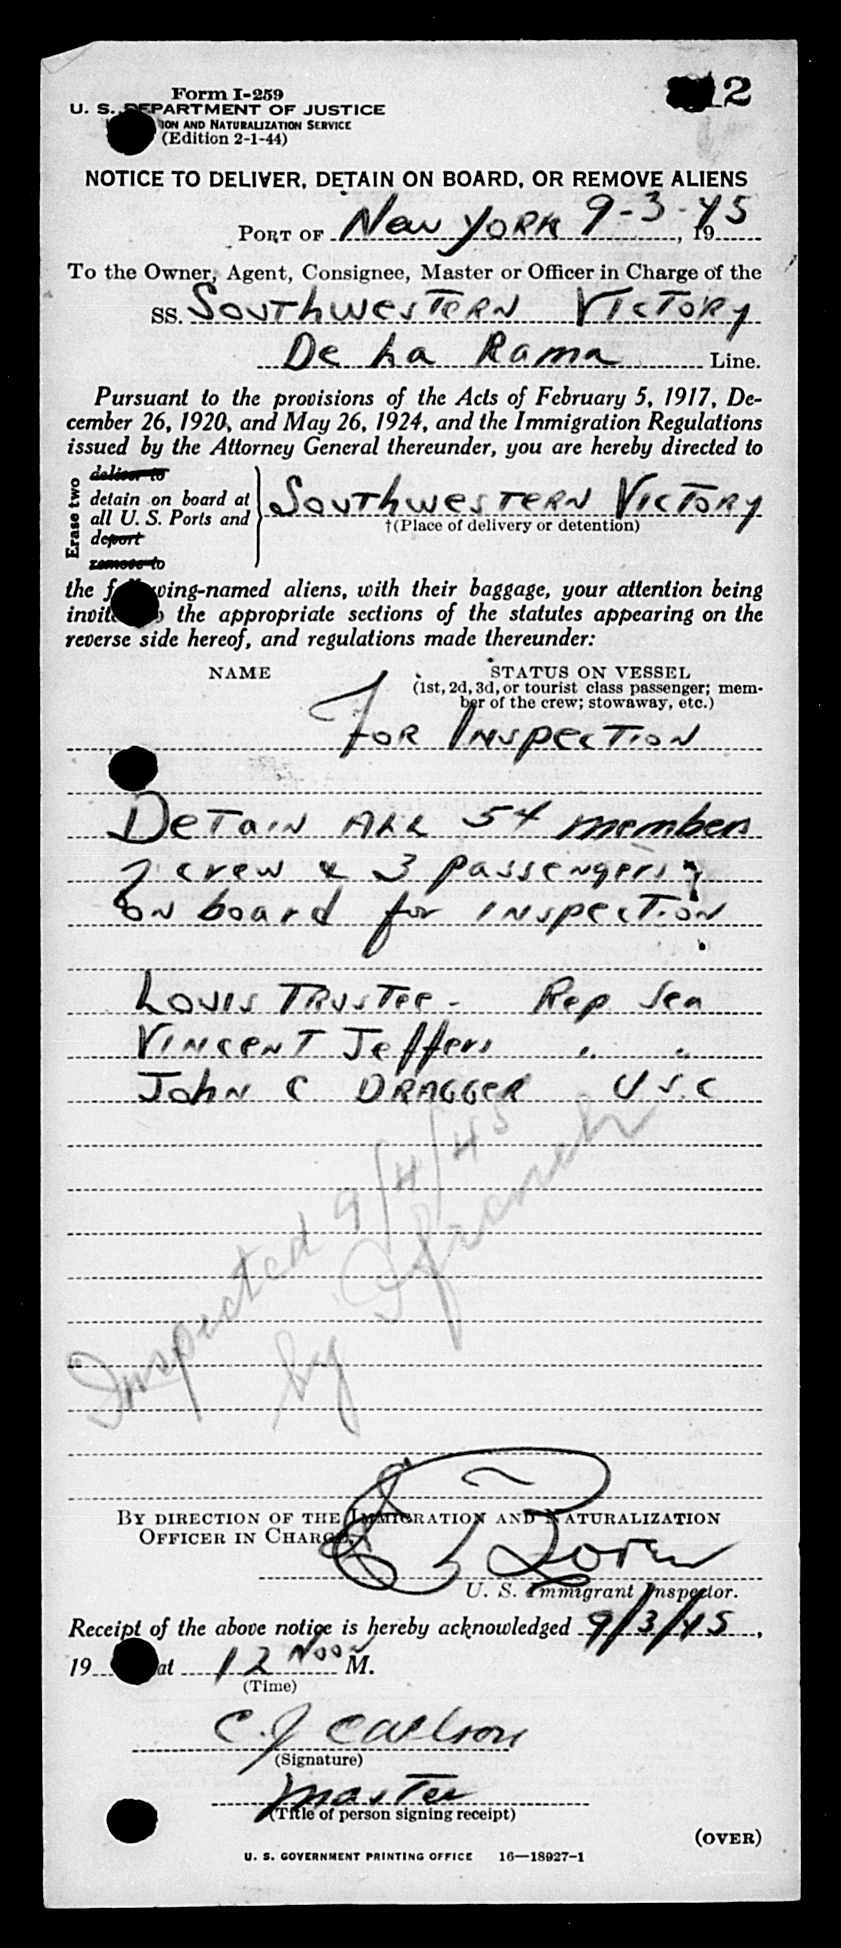 Form I-259
12
U. S. DEPARTMENT OF JUSTICE
ION AND NATURALIZATION SERVICE
(Edition 2-1-44)
NOTICE TO DELIVER, DETAIN ON BOARD, OR REMOVE ALIENS
PORT OF New York 9-3-45, 19
To the Owner, Agent, Consignee, Master or Officer in Charge of the
SS. Southwestern Victory
De La Rama Line.
Pursuant to the provisions of the Acts of February 5, 1917, De-
cember 26, 1920, and May 26, 1924, and the Immigration Regulations
issued by the Attorney General thereunder, you are hereby directed to
Erase two
deliver to
detain on board at
all U. S. Ports and
deport
remove to
Southwestern Victory
†(Place of delivery or detention)
the following-named aliens, with their baggage, your attention being
invited to the appropriate sections of the statutes appearing on the
reverse side hereof, and regulations made thereunder:
NAME STATUS ON VESSEL
(1st, 2d, 3d, or tourist class passenger; mem-
ber of the crew; stowaway, etc.)
For Inspection
Detain All 54 members
of crew & 3 passengers
on board for inspection
Louis Trustee - Rep Sea
Vincent Jeffers " "
John C Dragger U S. C
Inspected 9/4/45
by French
BY DIRECTION OF THE IMMIGRATION AND NATURALIZATION
OFFICER IN CHARGE,
U. S. Immigrant Inspector.
Receipt of the above notice is hereby acknowledged 9/3/45,
19 at 12 Noon M.
(Time)
C. J Carlson
(Signature)
Master
(Title of person signing receipt)
(OVER)
U. S. GOVERNMENT PRINTING OFFICE 16—18927-1